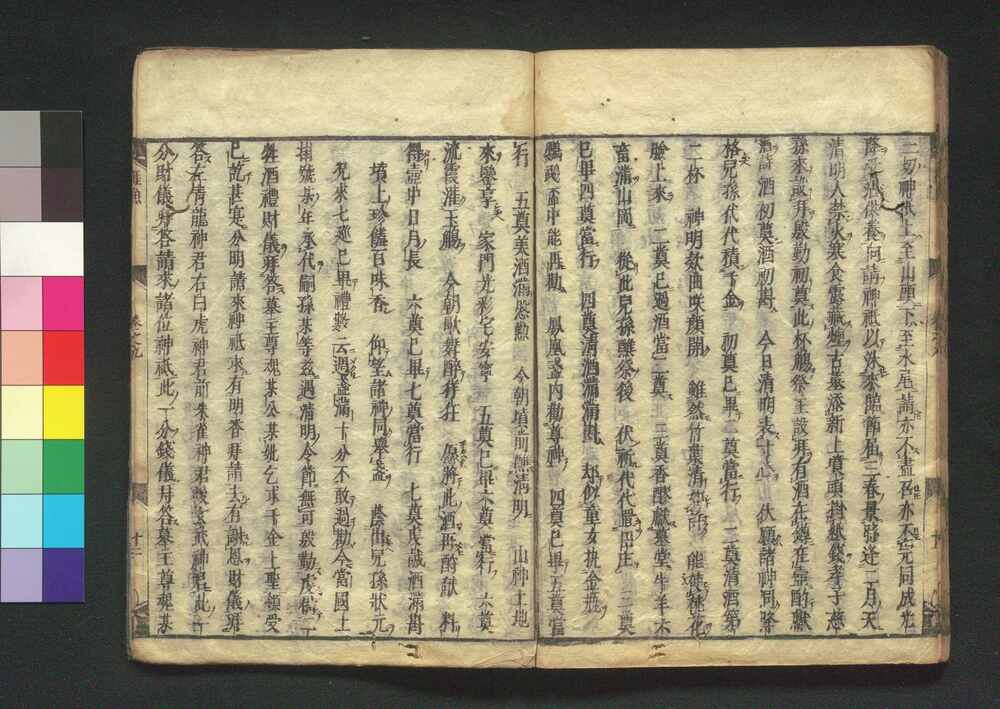 一切神祇上至山頭下至水尾請亦不盡召亦不完同成光
降受沾供養向請神祇以泆來節節值三春景發逢二月天
清明人禁火寒食露藏煙古墓添新土墳頭掛紙錢孝子慈
孫來或拜慇勤初奠此杯觴祭主設拜有酒在鐏在壺酌獻
酒詩 酒初奠酒初斟 今日清明表寸心 伏願諸神同降
格兒孫代代積千金 初奠已畢二奠當行 二奠清酒第
二杯 神明欸曲咲顏開 雖然竹葉清 能使桃花
臉上來 二奠已過酒當三奠 三奠香醪獻墓堂牛羊
畜滿山崗 從此兒孫醮祭後 伏祈代代置田庄 三奠
已畢四奠當行 四奠清酒滿滿斟 却似童女執金瓶
鸚鵡盃中能再勸 鳳凰盞內勸尊神 四奠已畢五奠當
行 五奠美酒滿慇懃 今朝墳前醮清明 山神土地
來饗享 家門光彩宅安寧 五奠已畢六奠當行 六奠
流霞滙玉觴 今朝歌舞醉祥狂 傾將此酒再酌獻 料
得壺中日月長 六奠已畢七奠當行 七奠虔誠酒滿斟
墳上珍饈百味香 仰望諸神同舉盞 蔭出兒孫狀元
先來七廵已畢禮數云週盞滿十分不敢過勸今當國土
某號某年丞代嗣孫某等兹遇清明令節無可慇勤虔備一
牲酒禮財儀拜答墓主尊魂某公某妣乞求千金上聖領受
已訖甚寒分明請來神祇來有明香拜請去有謝恩財儀拜
答左青龍神君右白虎神君前朱雀神君後玄武神君此一
分財儀拜答請來諸位神祇此一分錢儀拜答墓主尊魂某